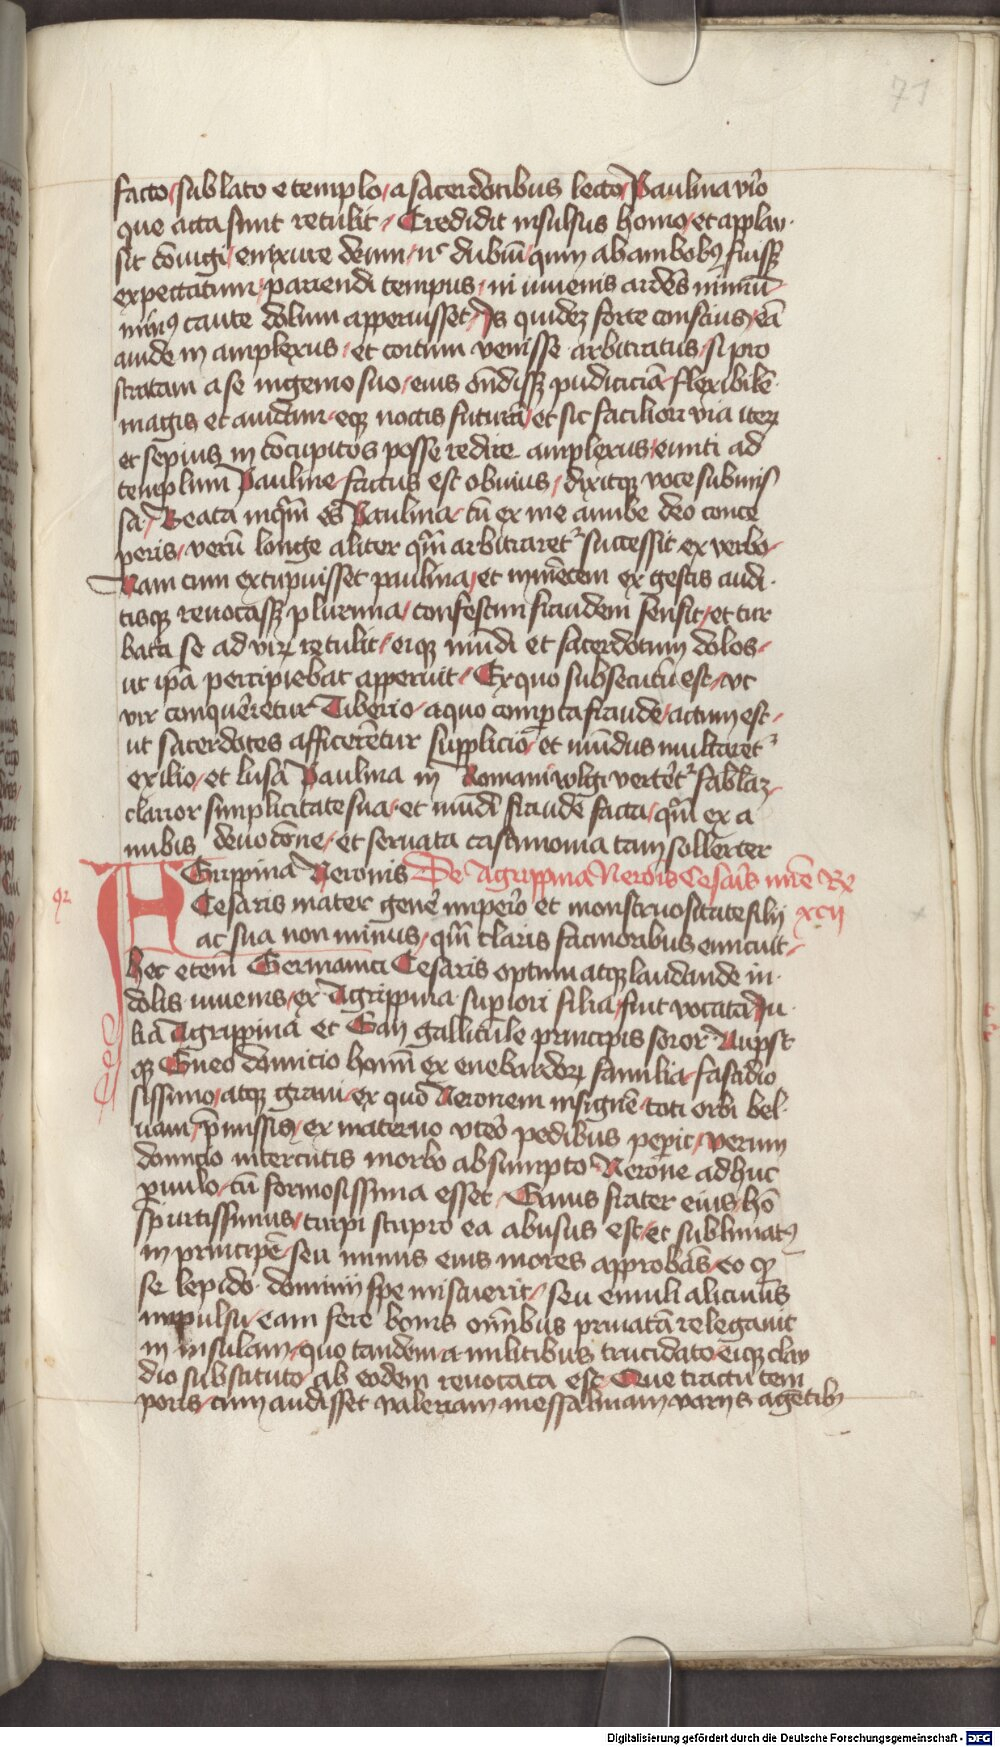 71
facto / sublato e templo / a sacerdotibus lecto / Paulina viro
que acta sunt retulit / Credidit insulsus homo / et applau
sit coniugi / enixure deum / nec dubiū / quin ab ambobꝰ fuissꝫ
expectatum / pariendi tempus / ni iuuenis ardēs nimiū
minꝰ caute dolum apperuisset / Is quidez forte conscius / eā
auide in amplexus / et coitum venisse arbitratus / si pro
stratam a se ingenio suo / eius ōndissꝫ pudiciciā flexibilē
magis et auidam / eqꝫ noctis futurā / et sic faciliori via iterꝫ
et sepius in cōcupitos posse redire amplexus / eunti ad
templum Pauline factus est obuius / dixitqꝫ voce submis
sa / Beata inqͫ es Paulina / cū ex me anube deo conce
peris / verū longe aliter qͫ arbitraret᷑ successit ex verbo
Nam cum extupuisset paulina / et in mētem ex gestis audi
tisqꝫ reuocassꝫ plurima / confestim fraudem sensit / et tur
bata se ad virꝫ retulit / eiqꝫ mūdi et sacerdotum dolos
ut ip̄a percipiebat apperuit / Ex quo subsecutū est / vt
vir conquēretur Tiberio / a quo comp̱ta fraude / actum est
ut sacerdotes afficerētur supplicio / et mūdus multaret᷑
exilio / et lusa Paulina in Romani wlgi vertēt᷑ fablaꝫ
clarior simplicitate sua / et mūdi fraude facta / qͫ ex a
nubis deuocōne / et seruata castimonia tam sollerter
AGrippina Neronis De Agrippina Nerōis Cesaris mr̄e Rx
qꝛ
Cesaris mater genē imperō et monstruositate filij xcij
ac sua non minus / qͫ claris facinoribus emicuit
hec etem̄ Germanici Cesaris optimi atqꝫ laudande in
dolis iuuenis / ex Agrippina superiori filia / fuit vocata Ju
lia Agrippina et Gaij gallicule principis soror Nupsit
qꝫ Gneo domicio homī ex enebardorꝫ familia / fastidio
sissimo / atqꝫ graui / ex quo Neronem insignē / toti orbi bel
uam / p̄missis / ex materno vtero pedibus peperit / verum
domicio intercutis morbo absumpto Nerone adhuc
paruulo / cū formosissima esset / Gaius frater eius / hō
spurtissimus / turpi stupro ea abusus est / et sublimatꝰ
in principē / seu minus eius mores approbās / eo ꝙ
se lepido dominij spe miscuerit / seu emuli alicuiūs
impulsu / eam fere bonis om̄ibus priuatā relegauit
in insulam / quo tandem a militibus trucidato / eiqꝫ clau
dio substituto / ab eodem reuocata est / Que tractu tem
poris / cum audisset valeriam messalinam varijs agētibꝰ
Digitalisierung gefördert durch die Deutsche Forschungsgemeinschaft - DFG